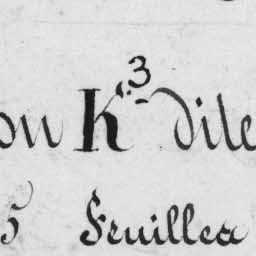 on K.3 dite
5 Feuilles